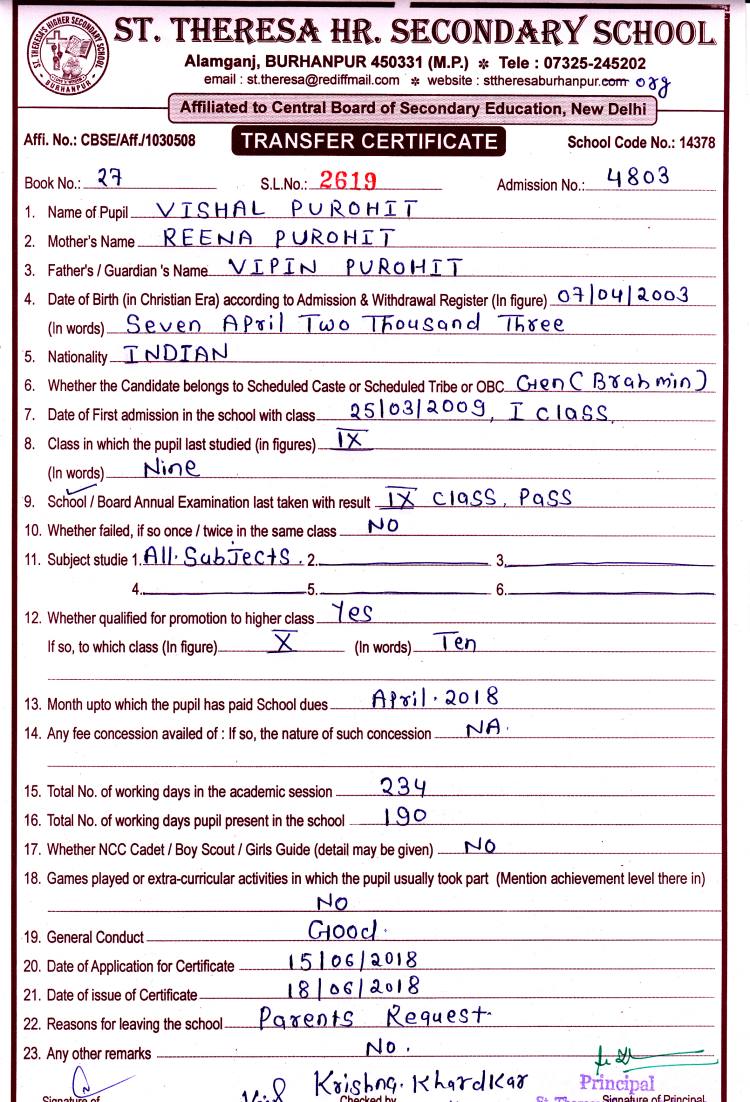 ST. THERESA'S HIGHER SECONDARY SCHOOL
BURHANPUR
ST. THERESA HR. SECONDARY SCHOOL
Alamganj, BURHANPUR 450331 (M.P.) * Tele : 07325-245202
email : st.theresa@rediffmail.com * website : sttheresaburhanpur.com org
Affiliated to Central Board of Secondary Education, New Delhi
Affi. No.: CBSE/Aff./1030508 TRANSFER CERTIFICATE School Code No.: 14378
Book No.: 27 S.L.No.: 2619 Admission No.: 4803
1. Name of Pupil VISHAL PUROHIT
2. Mother's Name REENA PUROHIT
3. Father's / Guardian 's Name VIPIN PUROHIT
4. Date of Birth (in Christian Era) according to Admission & Withdrawal Register (In figure) 07/04/2003
(In words) Seven April Two Thousand Three
5. Nationality INDIAN
6. Whether the Candidate belongs to Scheduled Caste or Scheduled Tribe or OBC Gen (Brahmin)
7. Date of First admission in the school with class 25/03/2009, I class,
8. Class in which the pupil last studied (in figures) IX
(In words) Nine
9. School / Board Annual Examination last taken with result IX class, Pass
10. Whether failed, if so once / twice in the same class NO
11. Subject studie 1. All. Subjects. 2. 3.
4. 5. 6.
12. Whether qualified for promotion to higher class Yes
If so, to which class (In figure) X (In words) Ten
13. Month upto which the pupil has paid School dues April. 2018
14. Any fee concession availed of : If so, the nature of such concession NA.
15. Total No. of working days in the academic session 234
16. Total No. of working days pupil present in the school 190
17. Whether NCC Cadet / Boy Scout / Girls Guide (detail may be given) NO
18. Games played or extra-curricular activities in which the pupil usually took part (Mention achievement level there in)
NO
19. General Conduct Good.
20. Date of Application for Certificate 15/06/2018
21. Date of issue of Certificate 18/06/2018
22. Reasons for leaving the school Parents Request.
23. Any other remarks NO.
Krishna. Khardkar Principal
Signature of Checked by St. Signature of Principal